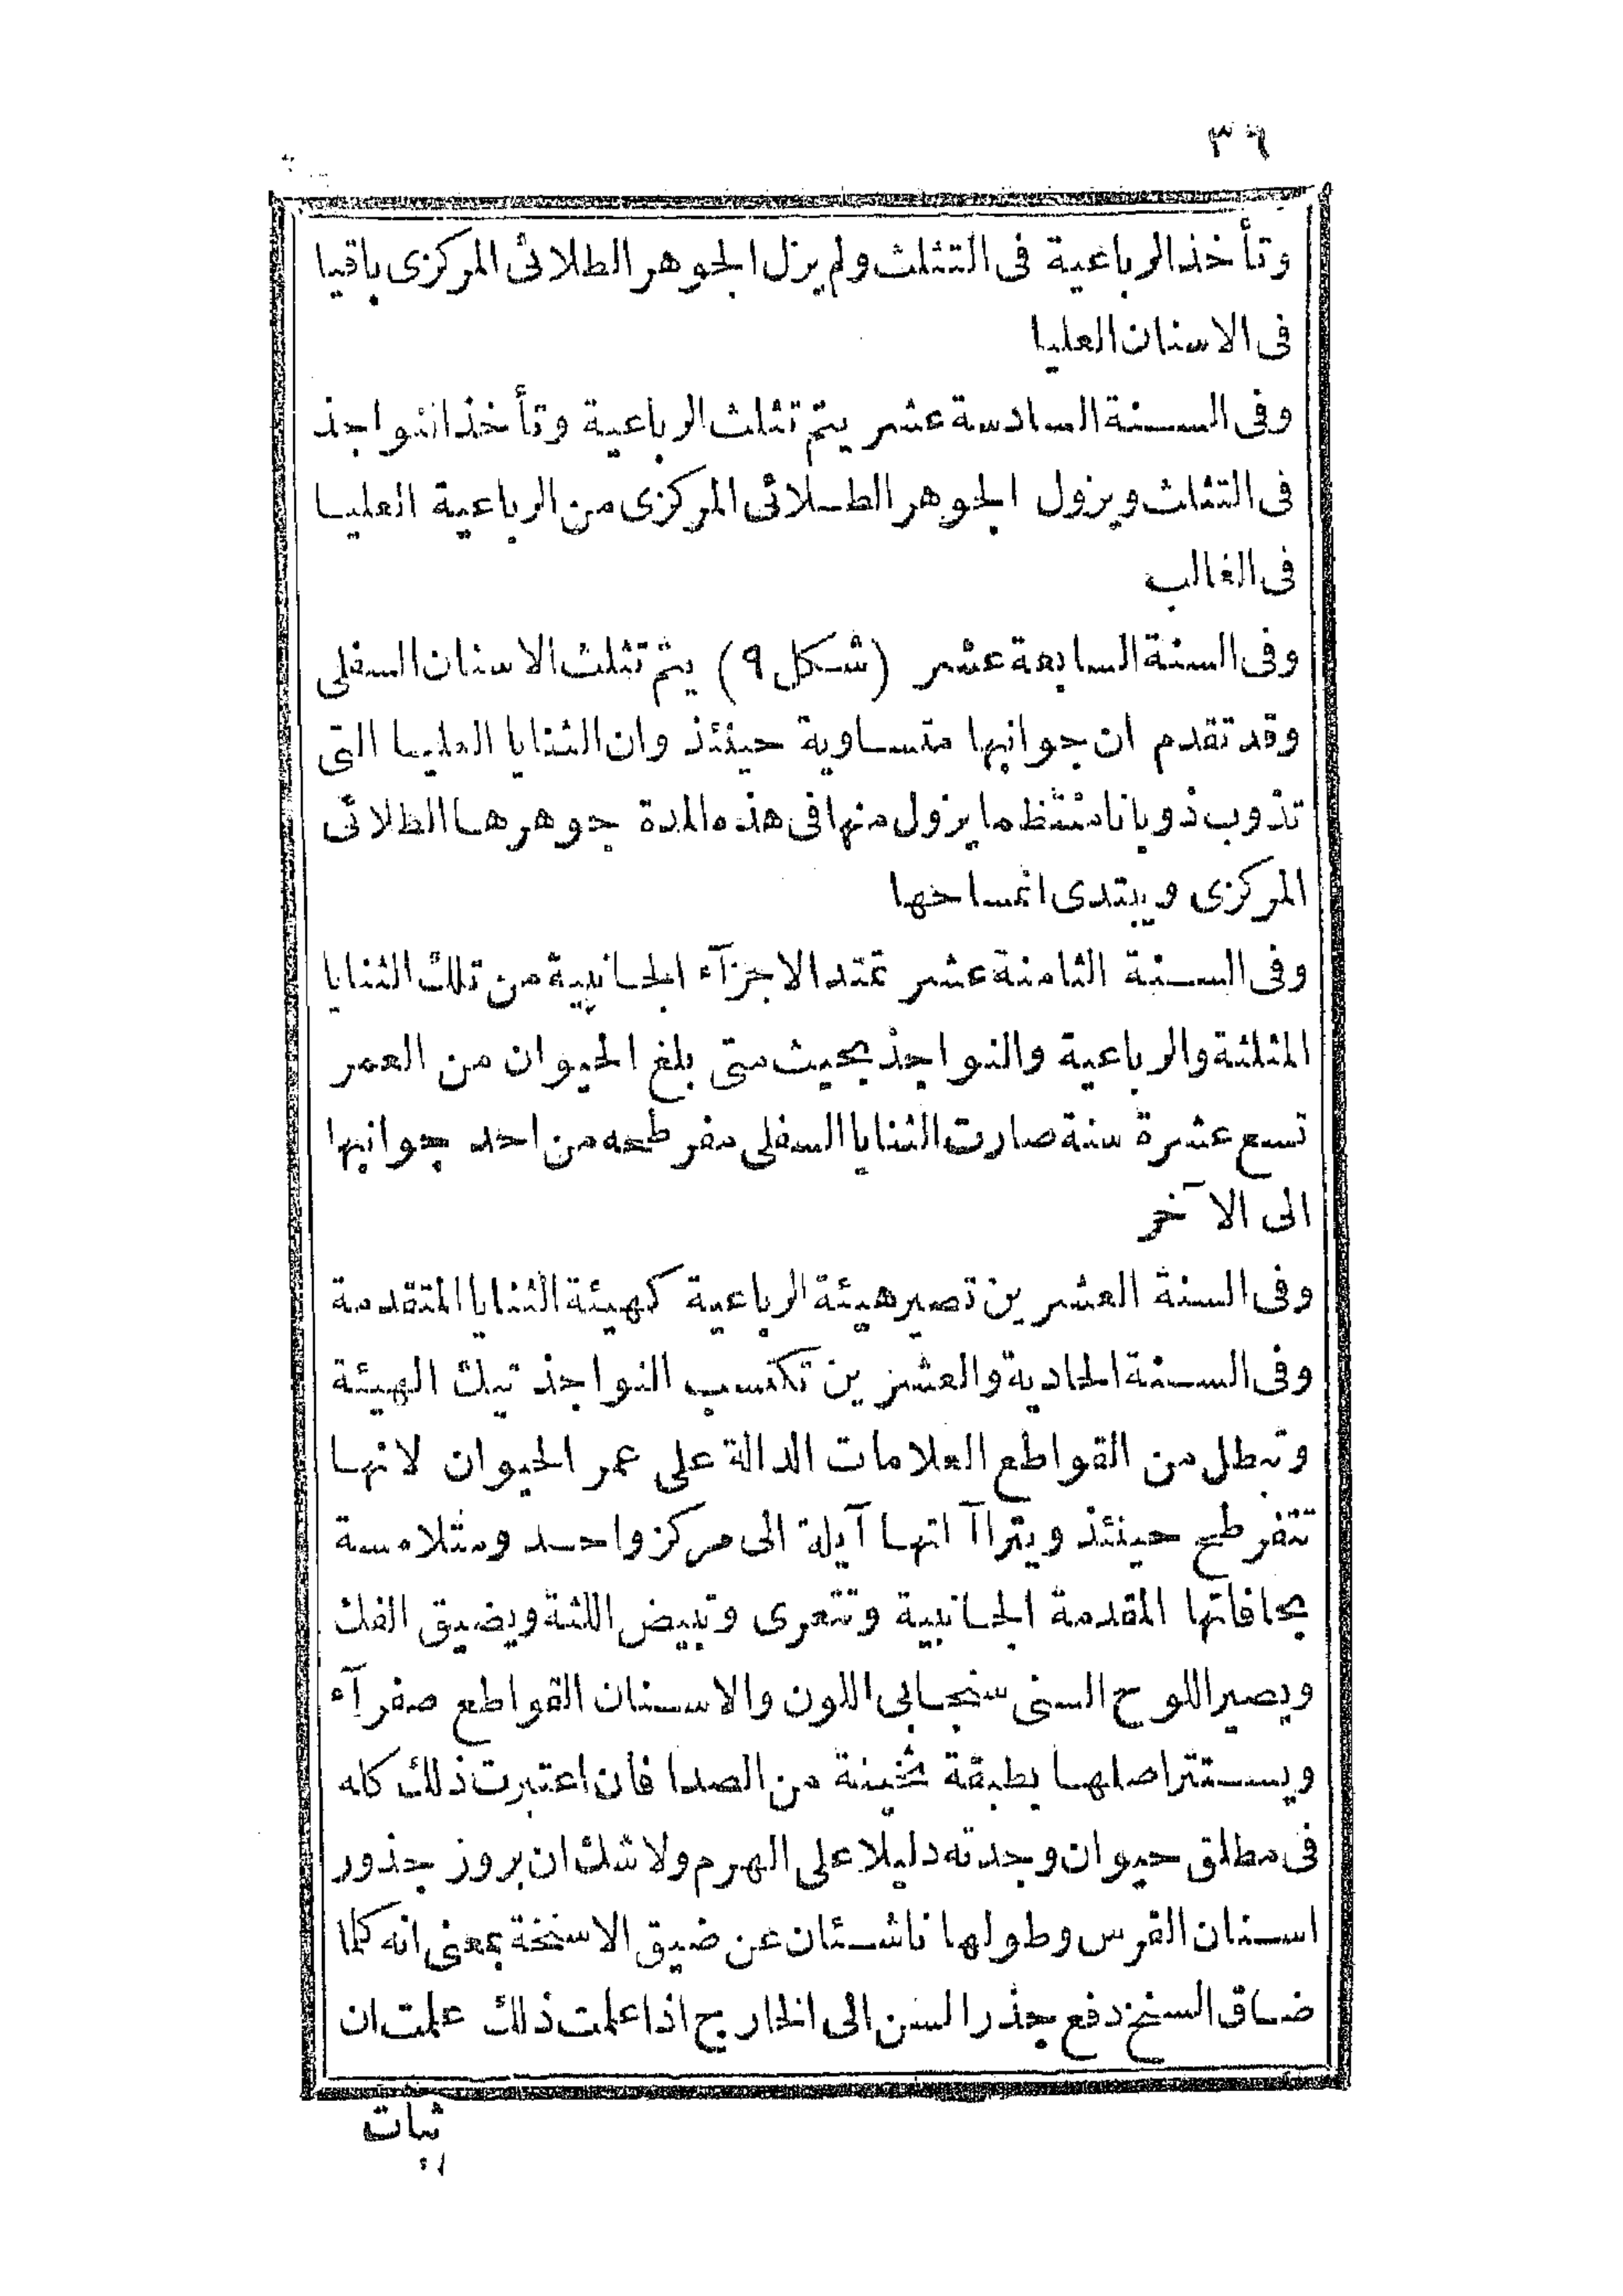 ٣٦
وتأخذ الرباعية فى التثلث ولم يزل الجوهر الطلائى المركزى باقيا
فى الاسنان العليا
وفى السنة السادسة عشر يتم تثلث الرباعية وتأخذ النواجذ
فى التثلث ويزول الجوهر الطلائى المركزى من الرباعية العليا
فى الغالب
وفى السنة السابعة عشر (شكل ٩) يتم تثلث الاسنان السفلى
وقد تقدم ان جوانبها متساوية حينئذ وان الثنايا العليا التى
تذوب ذوبانا منتظما يزول منها فى هذه المدة جوهرها الطلائى
المركزى ويبتدى انمساحها
وفى السنة الثامنة عشر تمتد الاجزآء الجانبية من تلك الثنايا
المثلثة والرباعية والنواجذ بحيث متى بلغ الحيوان من العمر
تسع عشرة سنة صارت الثنايا السفلى مفرطحه من احد جوانبها
الى الآخر
وفى السنة العشرين تصير هيئة الرباعية كهيئة الثنايا المتقدمة
وفى السنة الحادية والعشرين تكتسب النواجذ تيك الهيئة
وتبطل من القواطع العلامات الدالة على عمر الحيوان لانها
تتفرطح حينئذ ويتراآ انها آيلة الى مركز واحد ومتلامسة
بحافاتها المقدمة الجانبية وتتعرى وتبيض اللثة ويضيق الفك
ويصير اللوح السنى سنجابى اللون والاسنان القواطع صفرآء
ويستتر اصلها بطبقة ثخينة من الصدا فان اعتبرت ذلك كله
فى مطلق حيوان وجدته دليلا على الهرم ولا شك ان بروز جذور
اسنان الفرس وطولها ناشئان عن ضيق الاسنخة بمعنى انه كلما
ضاق السنخ دفع جذر السن الى الخارج اذا علمت ذلك علمت ان
ثبات